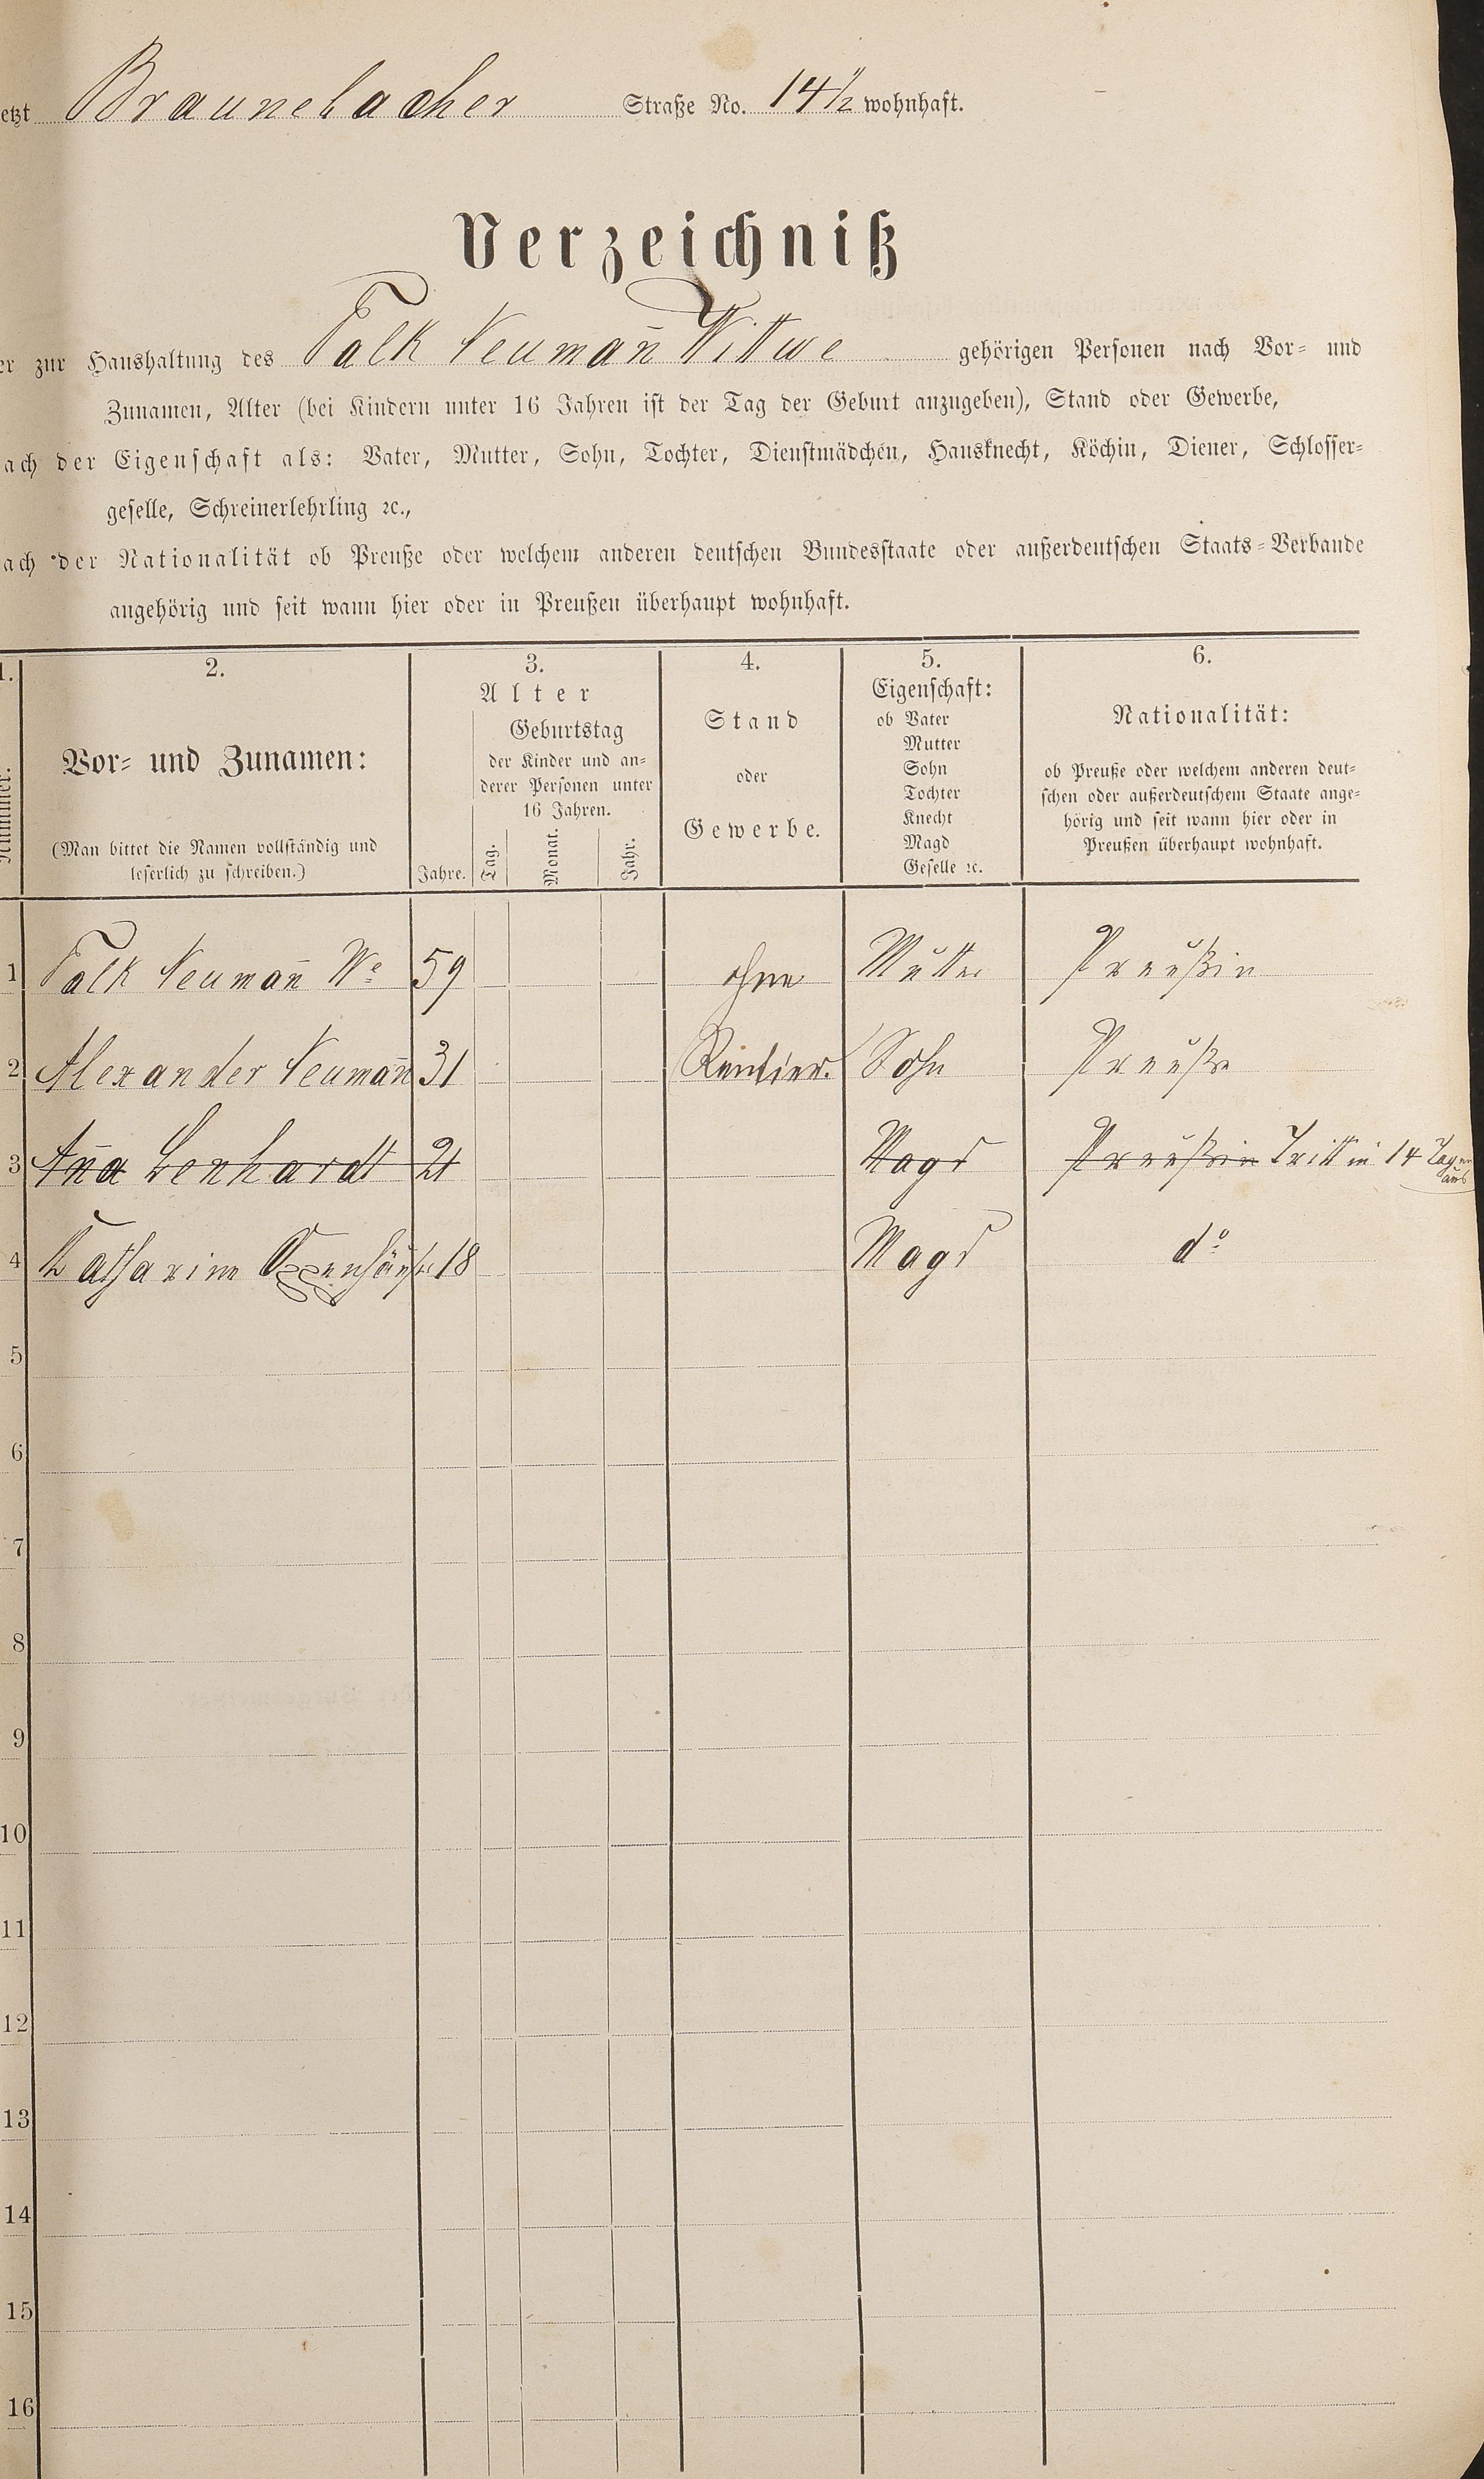 etzt Braunebacher Straße No. 14 1/2 wohnhaft.
Verzeichniß
er zur Haushaltung des Falk Neumañ Wittwe gehörigen Personen nach Vor- und
Zunamen, Alter (bei Kindern unter 16 Jahren ist der Tag der Geburt anzugeben), Stand oder Gewerbe,
ach der Eigenschaft als: Vater, Mutter, Sohn, Tochter, Dienstmädchen, Hausknecht, Köchin, Diener, Schlosser-
geselle, Schreinerlehrling ꝛc.,
ach der Nationalität ob Preuße oder welchem anderen deutschen Bundesstaate oder außerdeutschen Staats-Verbande
angehörig und seit wann hier oder in Preußen überhaupt wohnhaft.
1.
Nummer.
2.
Vor- und Zunamen:
(Man bittet die Namen vollständig und
leserlich zu schreiben.)
3.
Alter
Jahre.
Geburtstag
der Kinder und an-
derer Personen unter
16 Jahren.
Tag. Monat. Jahr.
4.
Stand
oder
Gewerbe.
5.
Eigenschaft:
ob Vater
Mutter
Sohn
Tochter
Knecht
Magd
Geselle ꝛc.
6.
Nationalität:
ob Preuße oder welchem anderen deut-
schen oder außerdeutschem Staate ange-
hörig und seit wann hier oder in
Preußen überhaupt wohnhaft.
1 Falk Neumañ We 59 ohne Mutter Preußin
2 Alexander Neumañ 31 Rentier. Sohn Preuße
3 Añа Lenhardt 21 Magd Preußin Tritt in 14 Tagen
aus
4 Katharine 18 Magd do
5
6
7
8
9
10
11
12
13
14
15
16